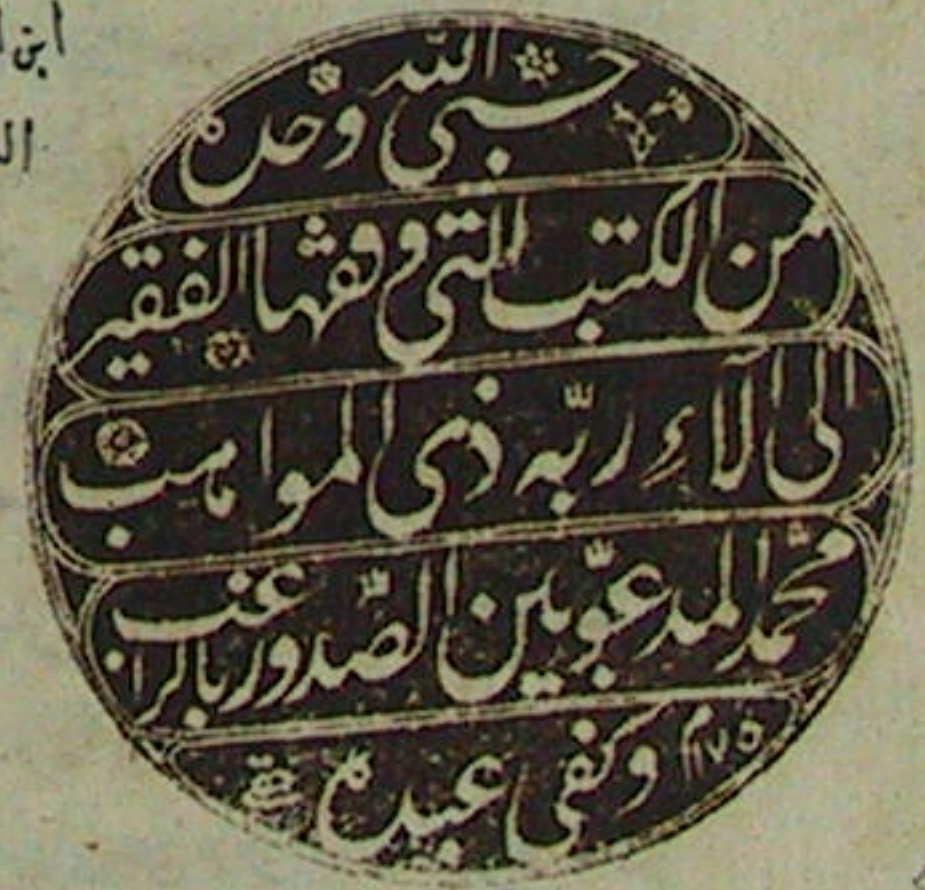 ابن
حسبي الله وحده
من الكتب التي وقفها الفقير
الى آلاءِ ربّه ذي المواهب
محمّد المدعوّ بين الصّدور بالراغب
١١٧٥ وكفى عبده